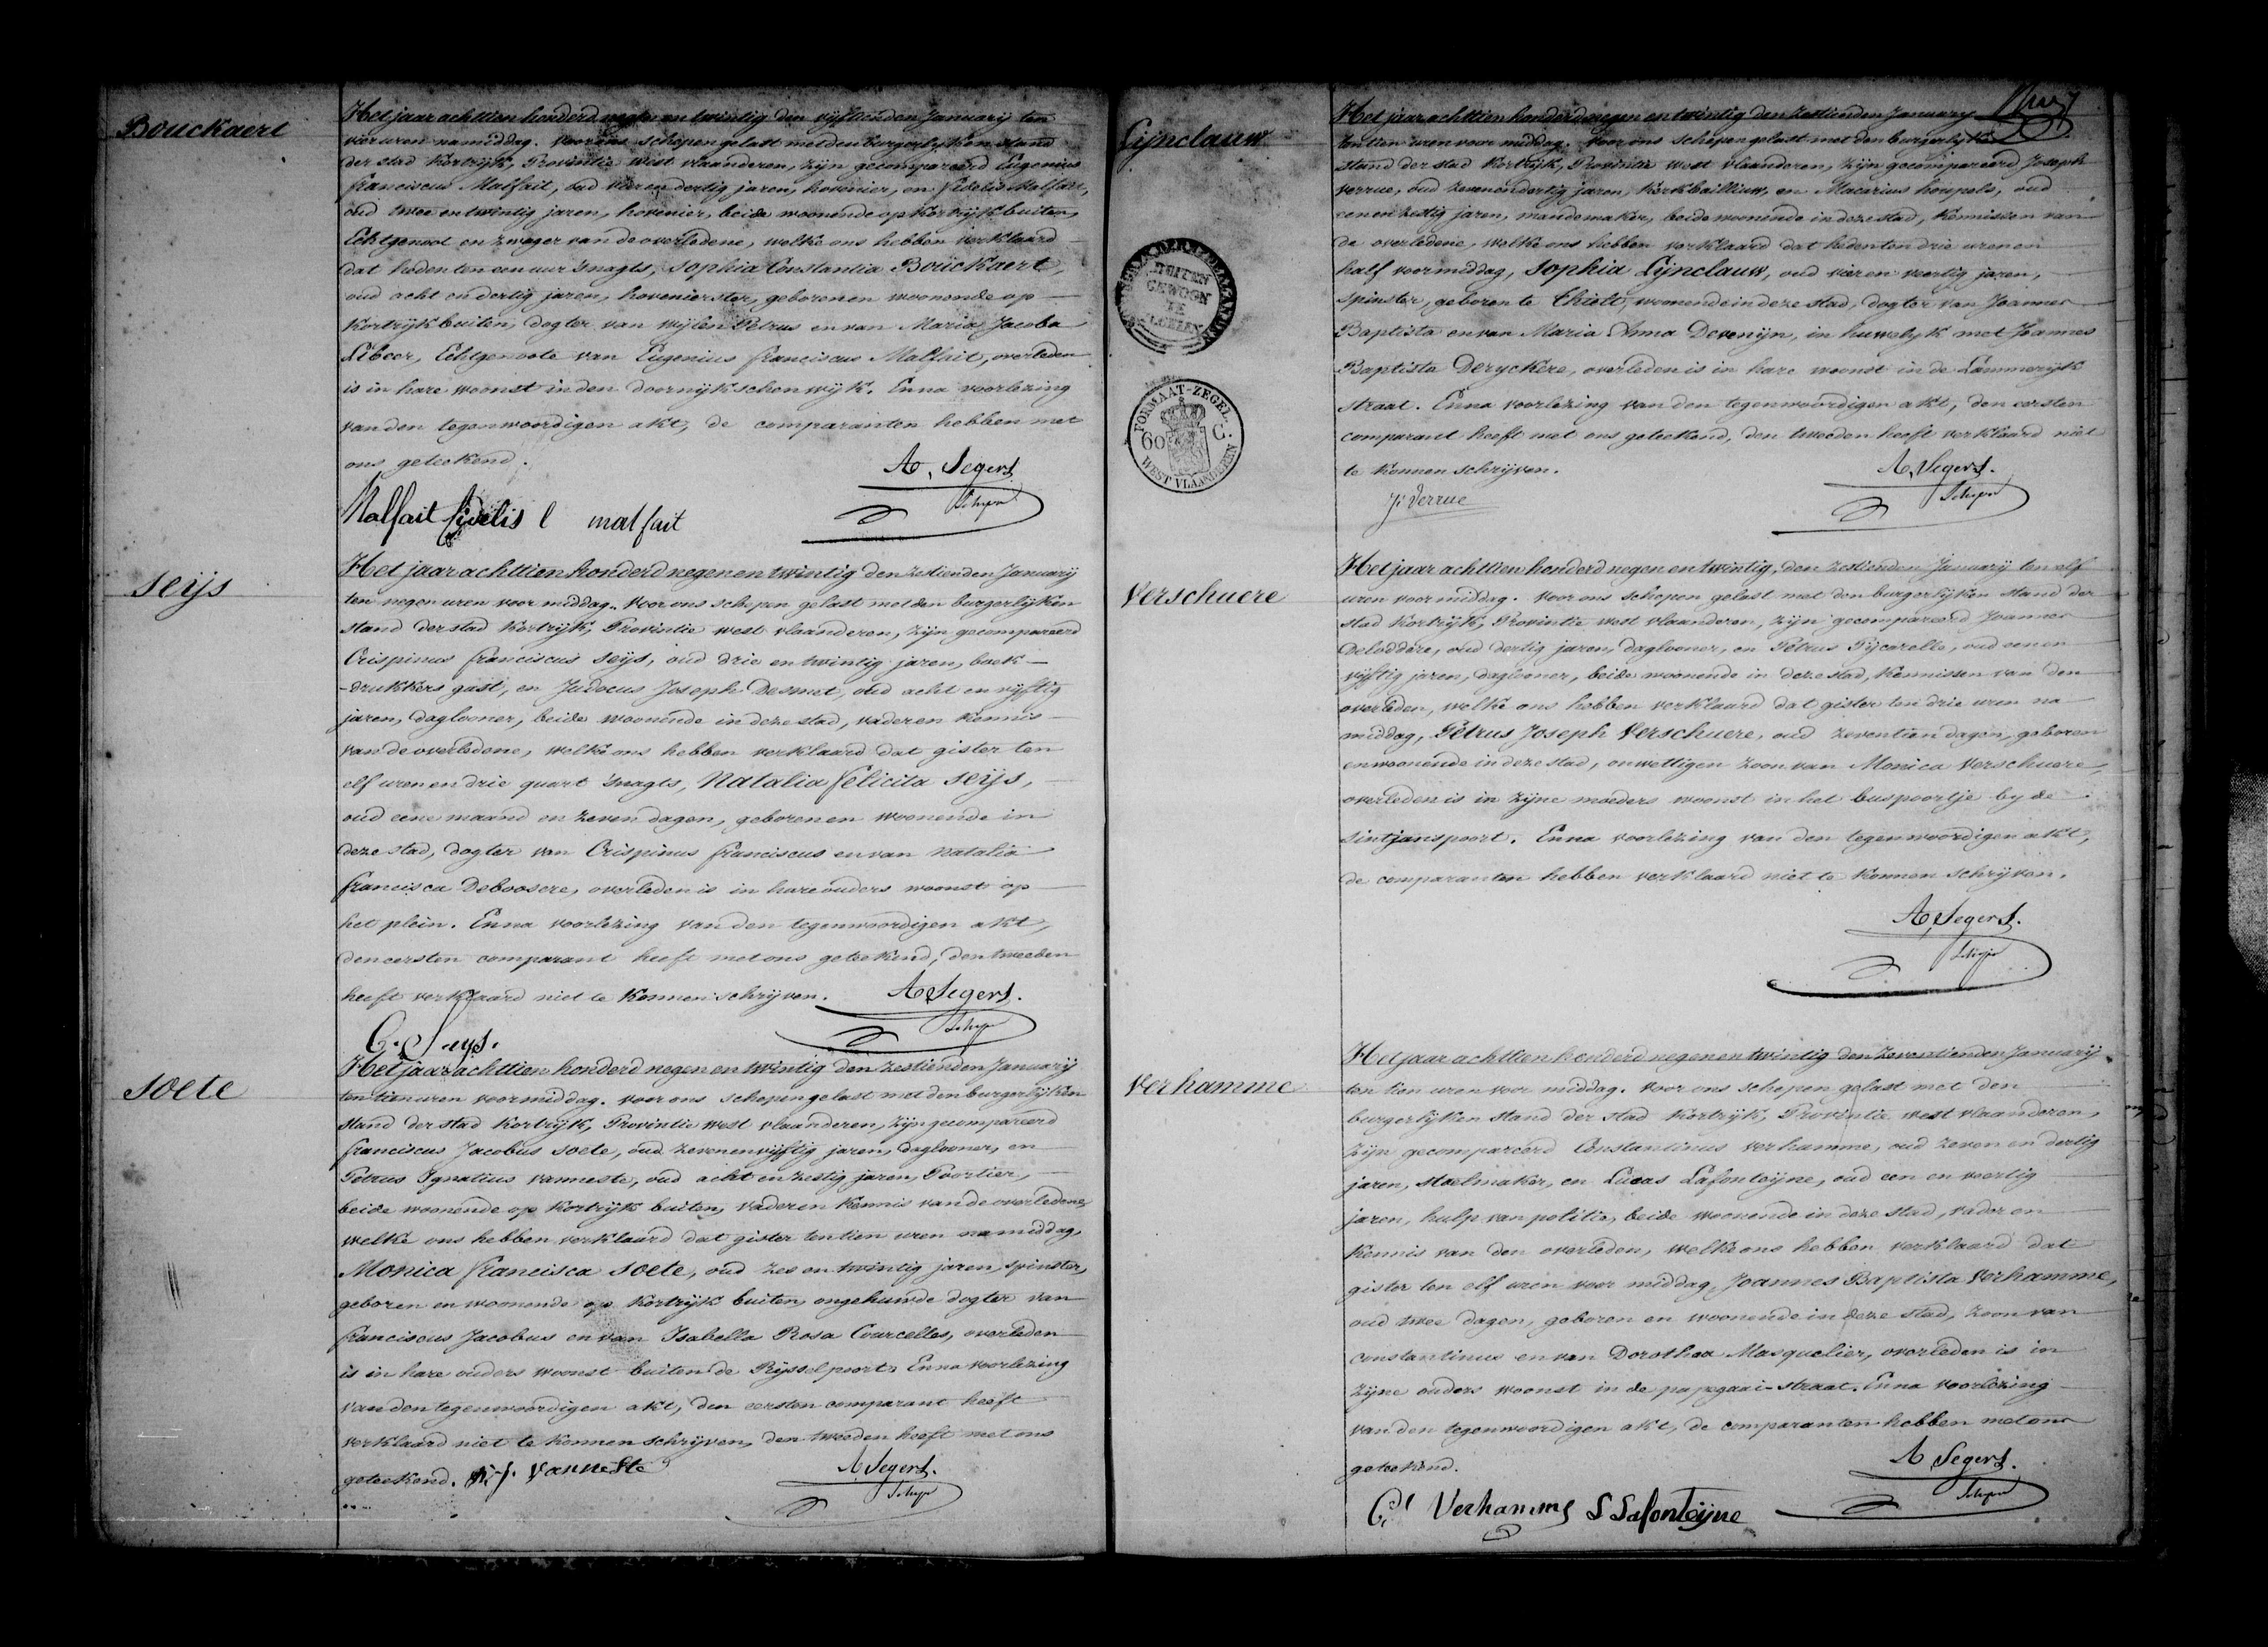 Bouckaert
Het jaar achttien honderd negen en twintig den vyftienden January ten
vier uren namiddag. Voor ons schepen gelast met den burgerlyken stand
der stad Kortryk, Provintie west vlaanderen, zyn gecompareerd Eugenius
franciscus Malfait, oud vier en dertig jaren, hovenier, en fidelis Malfait,
oud twee en twintig jaren, hovenier, beide woonende op Kortryk buiten,
Echtgenoot en zwager van de overledene, welke ons hebben verklaard
dat heden ten een uur 'snagts, Sophia Constantia Bouckaert,
oud acht en dertig jaren, hovenierster, geboren en woonende op
Kortryk buiten, dogter van wylen Petrus en van Maria Jacoba
Libeer, Echtgenoote van Eugenius franciscus Malfait, overleden
is in hare woonst in den doornykschen wyk. En na voorlezing
van den tegenwoordigen akt, de comparanten hebben met
ons geteekend.
A. Segers
Schepen
Malfait fidelis E malfait
Seijs
Het jaar achttien honderd negen en twintig den zestienden January
ten negen uren voor middag. Voor ons schepen gelast met den burgerlijken
stand der stad Kortrijk, Provintie west vlaanderen, zijn gecompareerd
Crispinus franciscus Seijs, oud drie en twintig jaren, boek-
-drukkers gast, en Judocus Joseph Desmet, oud acht en vyftig
jaren, daglooner, beide woonende in deze stad, vader en kennis
van de overledene, welke ons hebben verklaard dat gister ten
elf uren en drie quart 'snagts, Natalia felicita Seijs,
oud eene maand en zeven dagen, geboren en woonende in
deze stad, dogter van Crispinus franciscus en van natalia
francisca Deboosere, overleden is in hare ouders woonst op
het plein. En na voorlezing van den tegenwoordigen akt,
den eersten comparant heeft met ons geteekend, den tweeden
heeft verklaard niet te konnen schrijven. A. Segers.
Schepen
C. Seys.
Soete
Het jaar achttien honderd negen en twintig den zestienden January
ten tien uren voormiddag. Voor ons schepen gelast met den burgerlijken
stand der stad Kortrijk, Provintie west vlaanderen, zijn gecompareerd
franciscus Jacobus Soete, oud zeven en vijftig jaren, daglooner, en
Petrus Ignatius Vanneste, oud acht en zestig jaren, Poortier,
beide woonende op Kortrijk buiten, vader en kennis van de overledene,
welke ons hebben verklaard dat gister ten tien uren namiddag,
Monica francisca Soete, oud zes en twintig jaren, spinster,
geboren en woonende op Kortrijk buiten, ongehuwde dogter van
franciscus Jacobus en van Isabella Rosa Courcelles, overleden
is in hare ouders woonst buiten de Ryssel poort. En na voorlezing
van den tegenwoordigen akt, den eersten comparant heeft
verklaard niet te konnen schrijven, den tweeden heeft met ons
geteekend. Vanneste
A. Segers.
Schepen
Lijnclauw
BUITEN
GEWOON
TE
FORMAAT-ZEGEL.
60 C.
WEST VLAANDEREN
Het jaar achttien honderd negen en twintig den zestienden January
ten tien uren voor middag. Voor ons schepen gelast met den burgerlyken
stand der stad Kortrijk, Provintie west vlaanderen, zijn gecompareerd Joseph
Verrue, oud zeven en dertig jaren, kerkbailliuw, en Macarius herpels, oud
een en zestig jaren, mandemaker, beide woonende in deze stad, kennissen van
de overledene, welke ons hebben verklaard dat heden ten drie uren en
half voormiddag, Sophia Lijnclauw, oud vier en veertig jaren,
spinster, geboren te Thielt, woonende in deze stad, dogter van Joannes
Baptista en van Maria Anna Devenijn, in huwelyk met Joannes
Baptista Deryckere, overleden is in hare woonst in de Lammerijk
straat. En na voorlezing van den tegenwoordigen akt, den eersten
comparant heeft met ons geteekend, den tweeden heeft verklaard niet
te konnen schrijven.
A. Segers.
Schepen
J. Verrue
Verschuere
Het jaar achttien honderd negen en twintig, den zestienden January ten elf
uren voor middag. Voor ons schepen gelast met den burgerlijken stand der
stad Kortrijk, Provintie west vlaanderen, zijn gecompareerd Joannes
Deloddere, oud dertig jaren, daglooner, en Petrus Pycarelle, oud een en
vijftig jaren, daglooner, beide woonende in deze stad, kennissen van den
overleden, welke ons hebben verklaard dat gister ten drie uren na
middag, Petrus Joseph Verschuere, oud zeventien dagen, geboren
en woonende in deze stad, onwettigen zoon van Monica Verschuere,
overleden is in zijne moeders woonst in het buspoortje by de
sintjanspoort. En na voorlezing van den tegenwoordigen akt,
de comparanten hebben verklaard niet te konnen schrijven.
A. Segers.
Schepen
Verhamme
Het jaar achttien honderd negen en twintig den zeventienden January
ten tien uren voor middag. Voor ons schepen gelast met den
burgerlijken stand der stad Kortrijk, Provintie west vlaanderen,
zijn gecompareerd Constantinus Verhamme, oud zeven en dertig
jaren, stoelmaker, en Lucas Lafonteijne, oud een en veertig
jaren, hulp van politie, beide woonende in deze stad, vader en
kennis van den overleden, welke ons hebben verklaard dat
gister ten elf uren voor middag, Joannes Baptista Verhamme,
oud twee dagen, geboren en woonende in deze stad, zoon van
constantinus en van Dorothea Masquelier, overleden is in
zijne ouders woonst in de papegaai-straat. En na voorlezing
van den tegenwoordigen akt, de comparanten hebben met ons
geteekend.
A. Segers.
Schepen
C. Verhamme L Lafonteijne